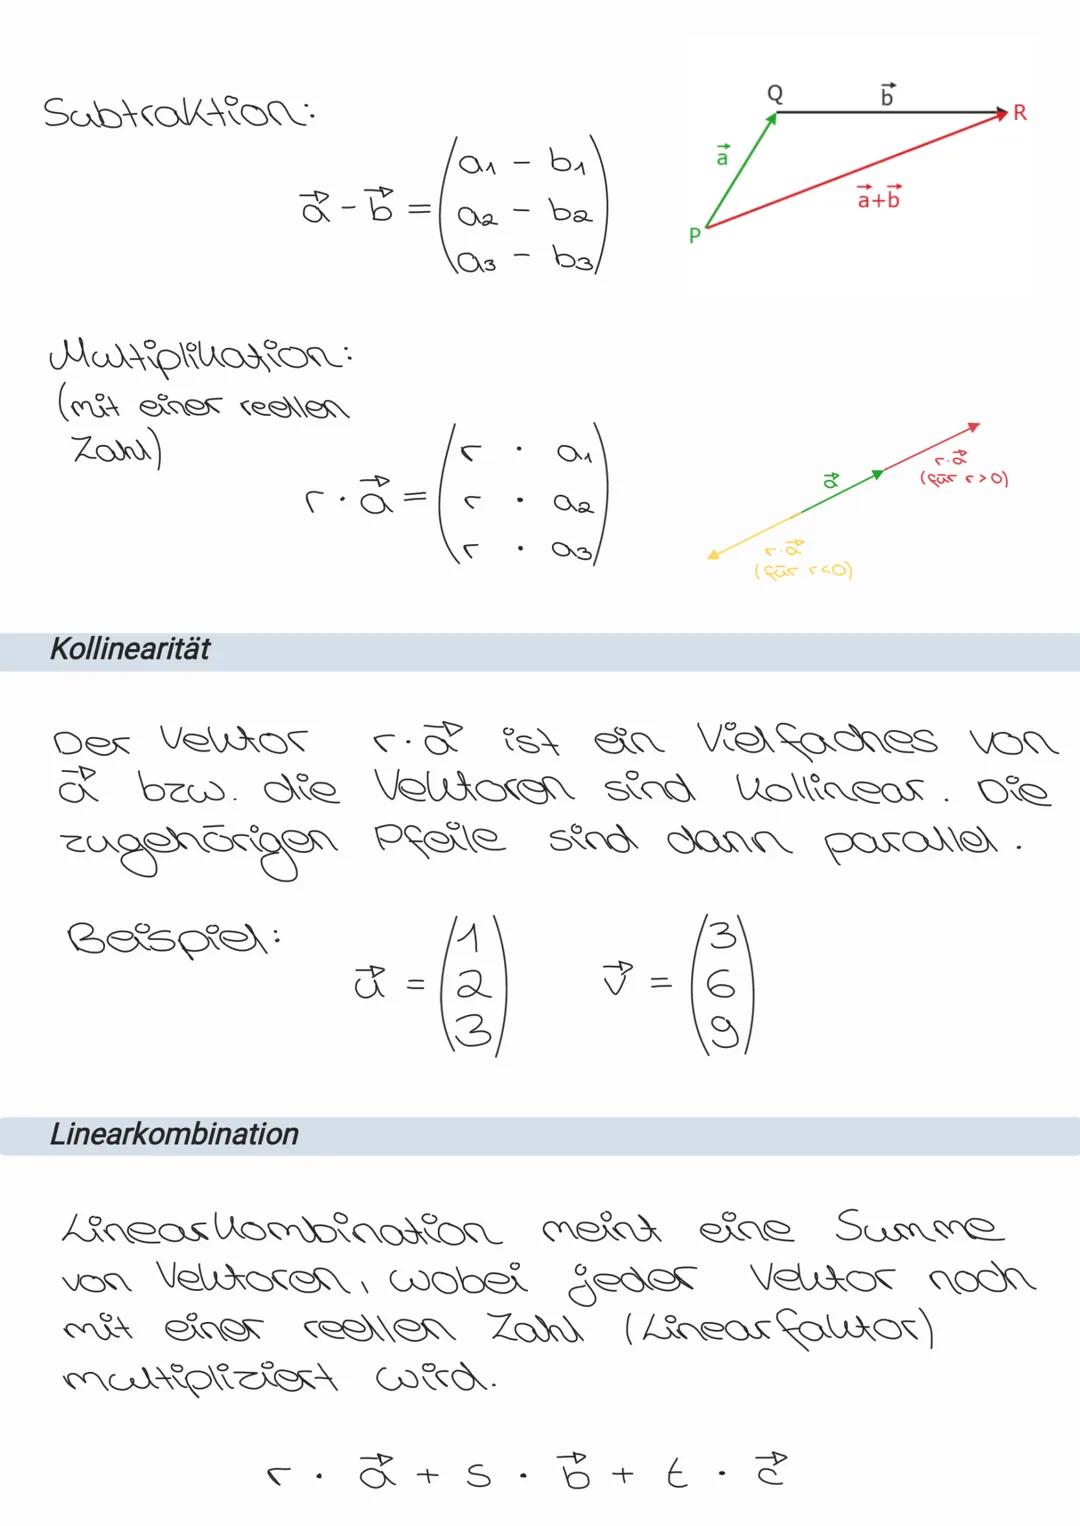 Subtraktion:
a⃗ - b⃗ = (a1 - b1
a2 - b2
a3 - b3)
Q b⃗ R
a⃗
a⃗+b⃗
P
Multiplikation:
(mit einer reellen
Zahl)
r · a⃗ = (r · a1
r · a2
r · a3)
a⃗
r·a⃗
(für r>0)
r·a⃗
(für r<0)
Kollinearität
Der Vektor r·a⃗ ist ein Vielfaches von
a⃗ bzw. die Vektoren sind kollinear. Die
zugehörigen Pfeile sind dann parallel.
Beispiel:
u⃗ = (1 2 3) v⃗ = (3 6 9)
Linearkombination
Linearkombination meint eine Summe
von Vektoren, wobei jeder Vektor noch
mit einer reellen Zahl (Linearfaktor)
multipliziert wird.
r · a⃗ + s · b⃗ + t · c⃗